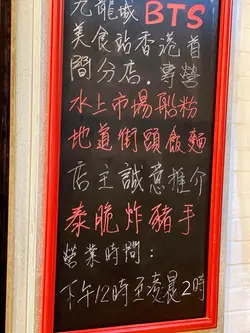 九龍城 BTS
美食站香港首
間分店．專營
水上市場船粉
地道街頭飯麵
店主誠意推介
泰脆炸豬手
營業時間：
下午12時至凌晨2時